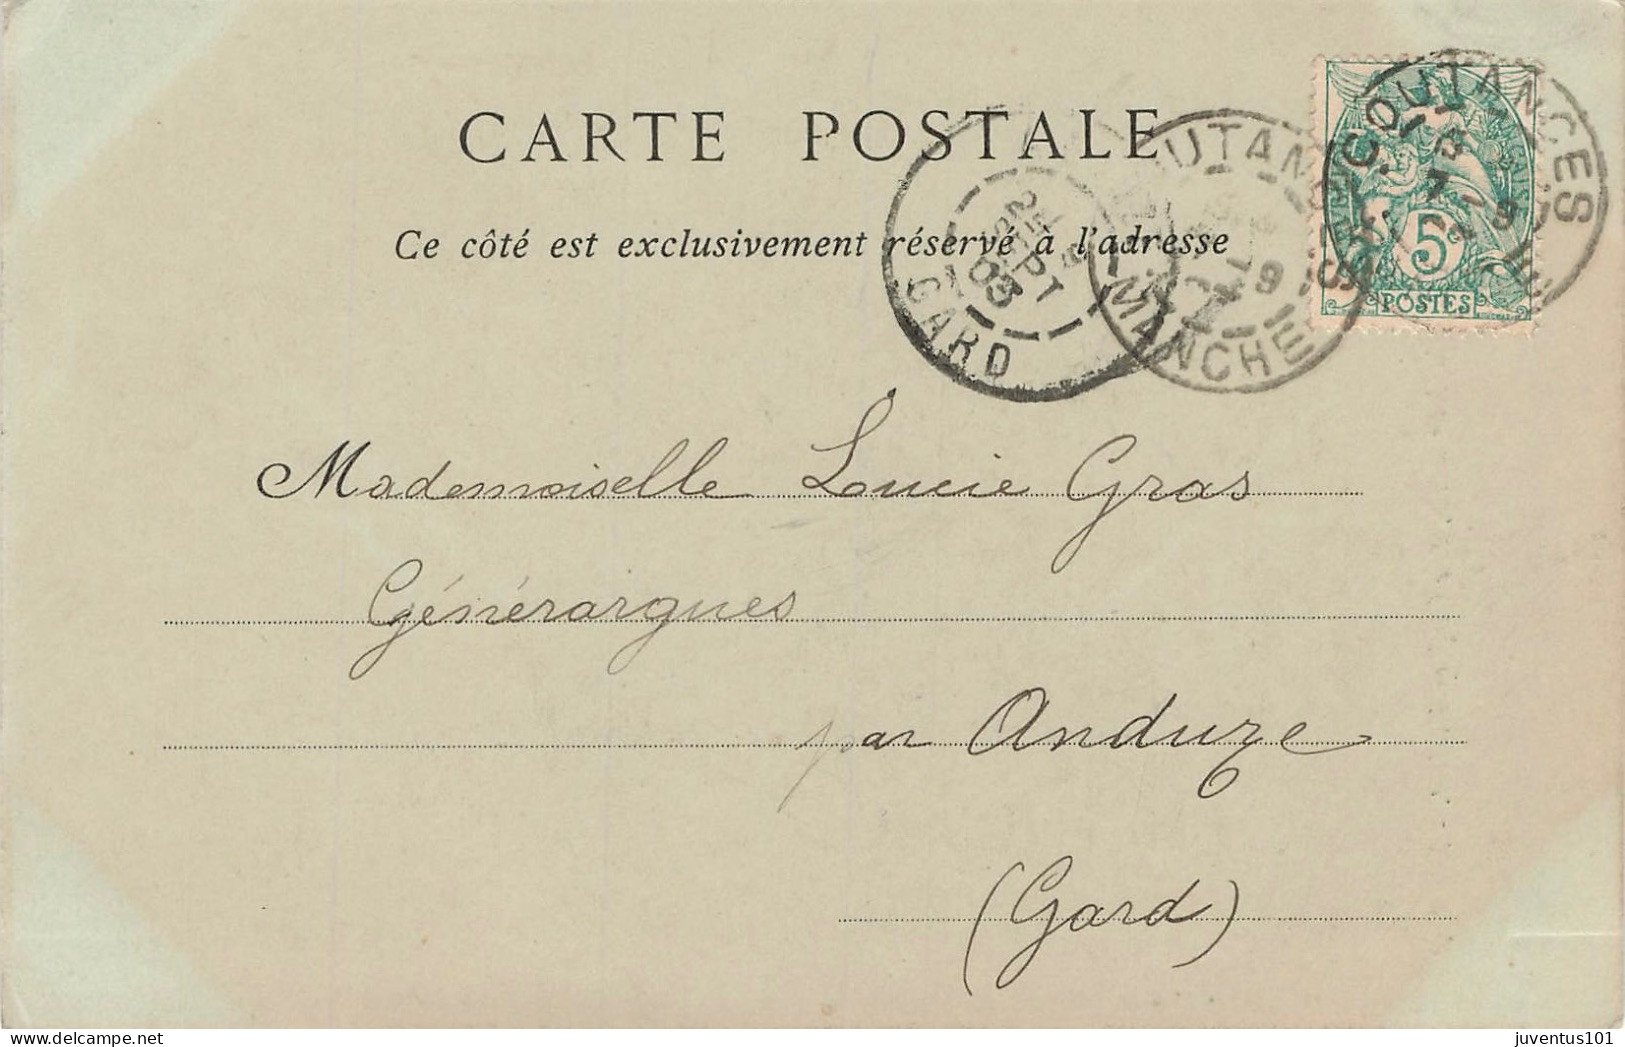 CARTE POSTALE
Ce côté est exclusivement réservé à l'adresse
COUTANCES
5c
POSTES
MANCHE
SEPT
03
GARD
Mademoiselle Lucie Gras
Générargues
par Anduze
(Gard)
juventus101